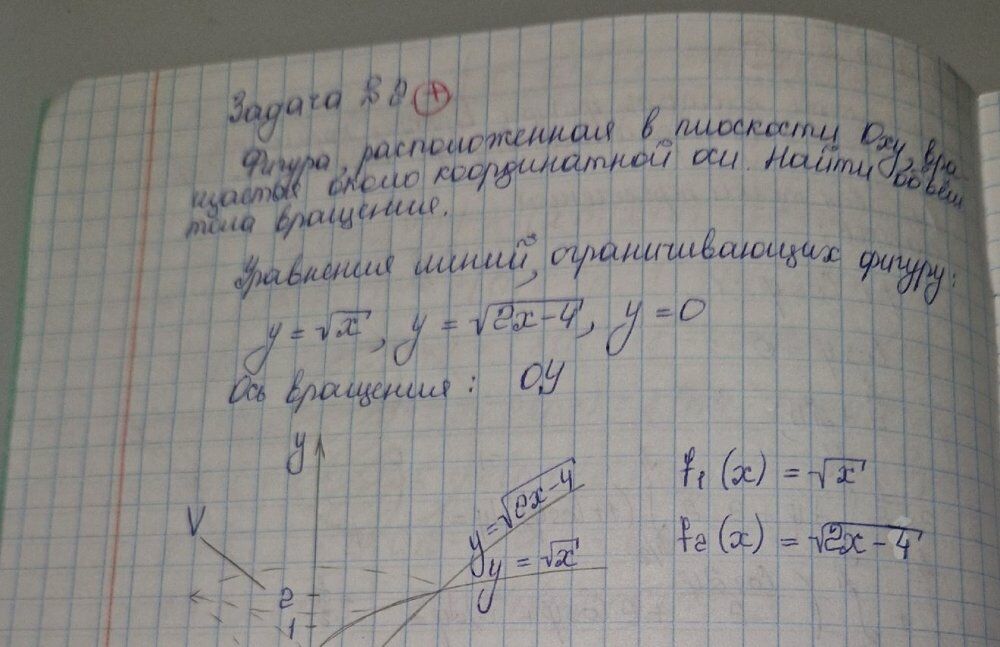 Задача 38 +
Фигура, расположенная в плоскости Oxy, вра-
щается около координатной оси. Найти объём
тела вращения.
Уравнения линий, ограничивающих фигуру:
y = √x, y = √2x-4, y = 0
Ось вращения: OY
y
f₁(x) = √x
y = √2x-4
V
f₂(x) = √2x-4
y = √x
2
1